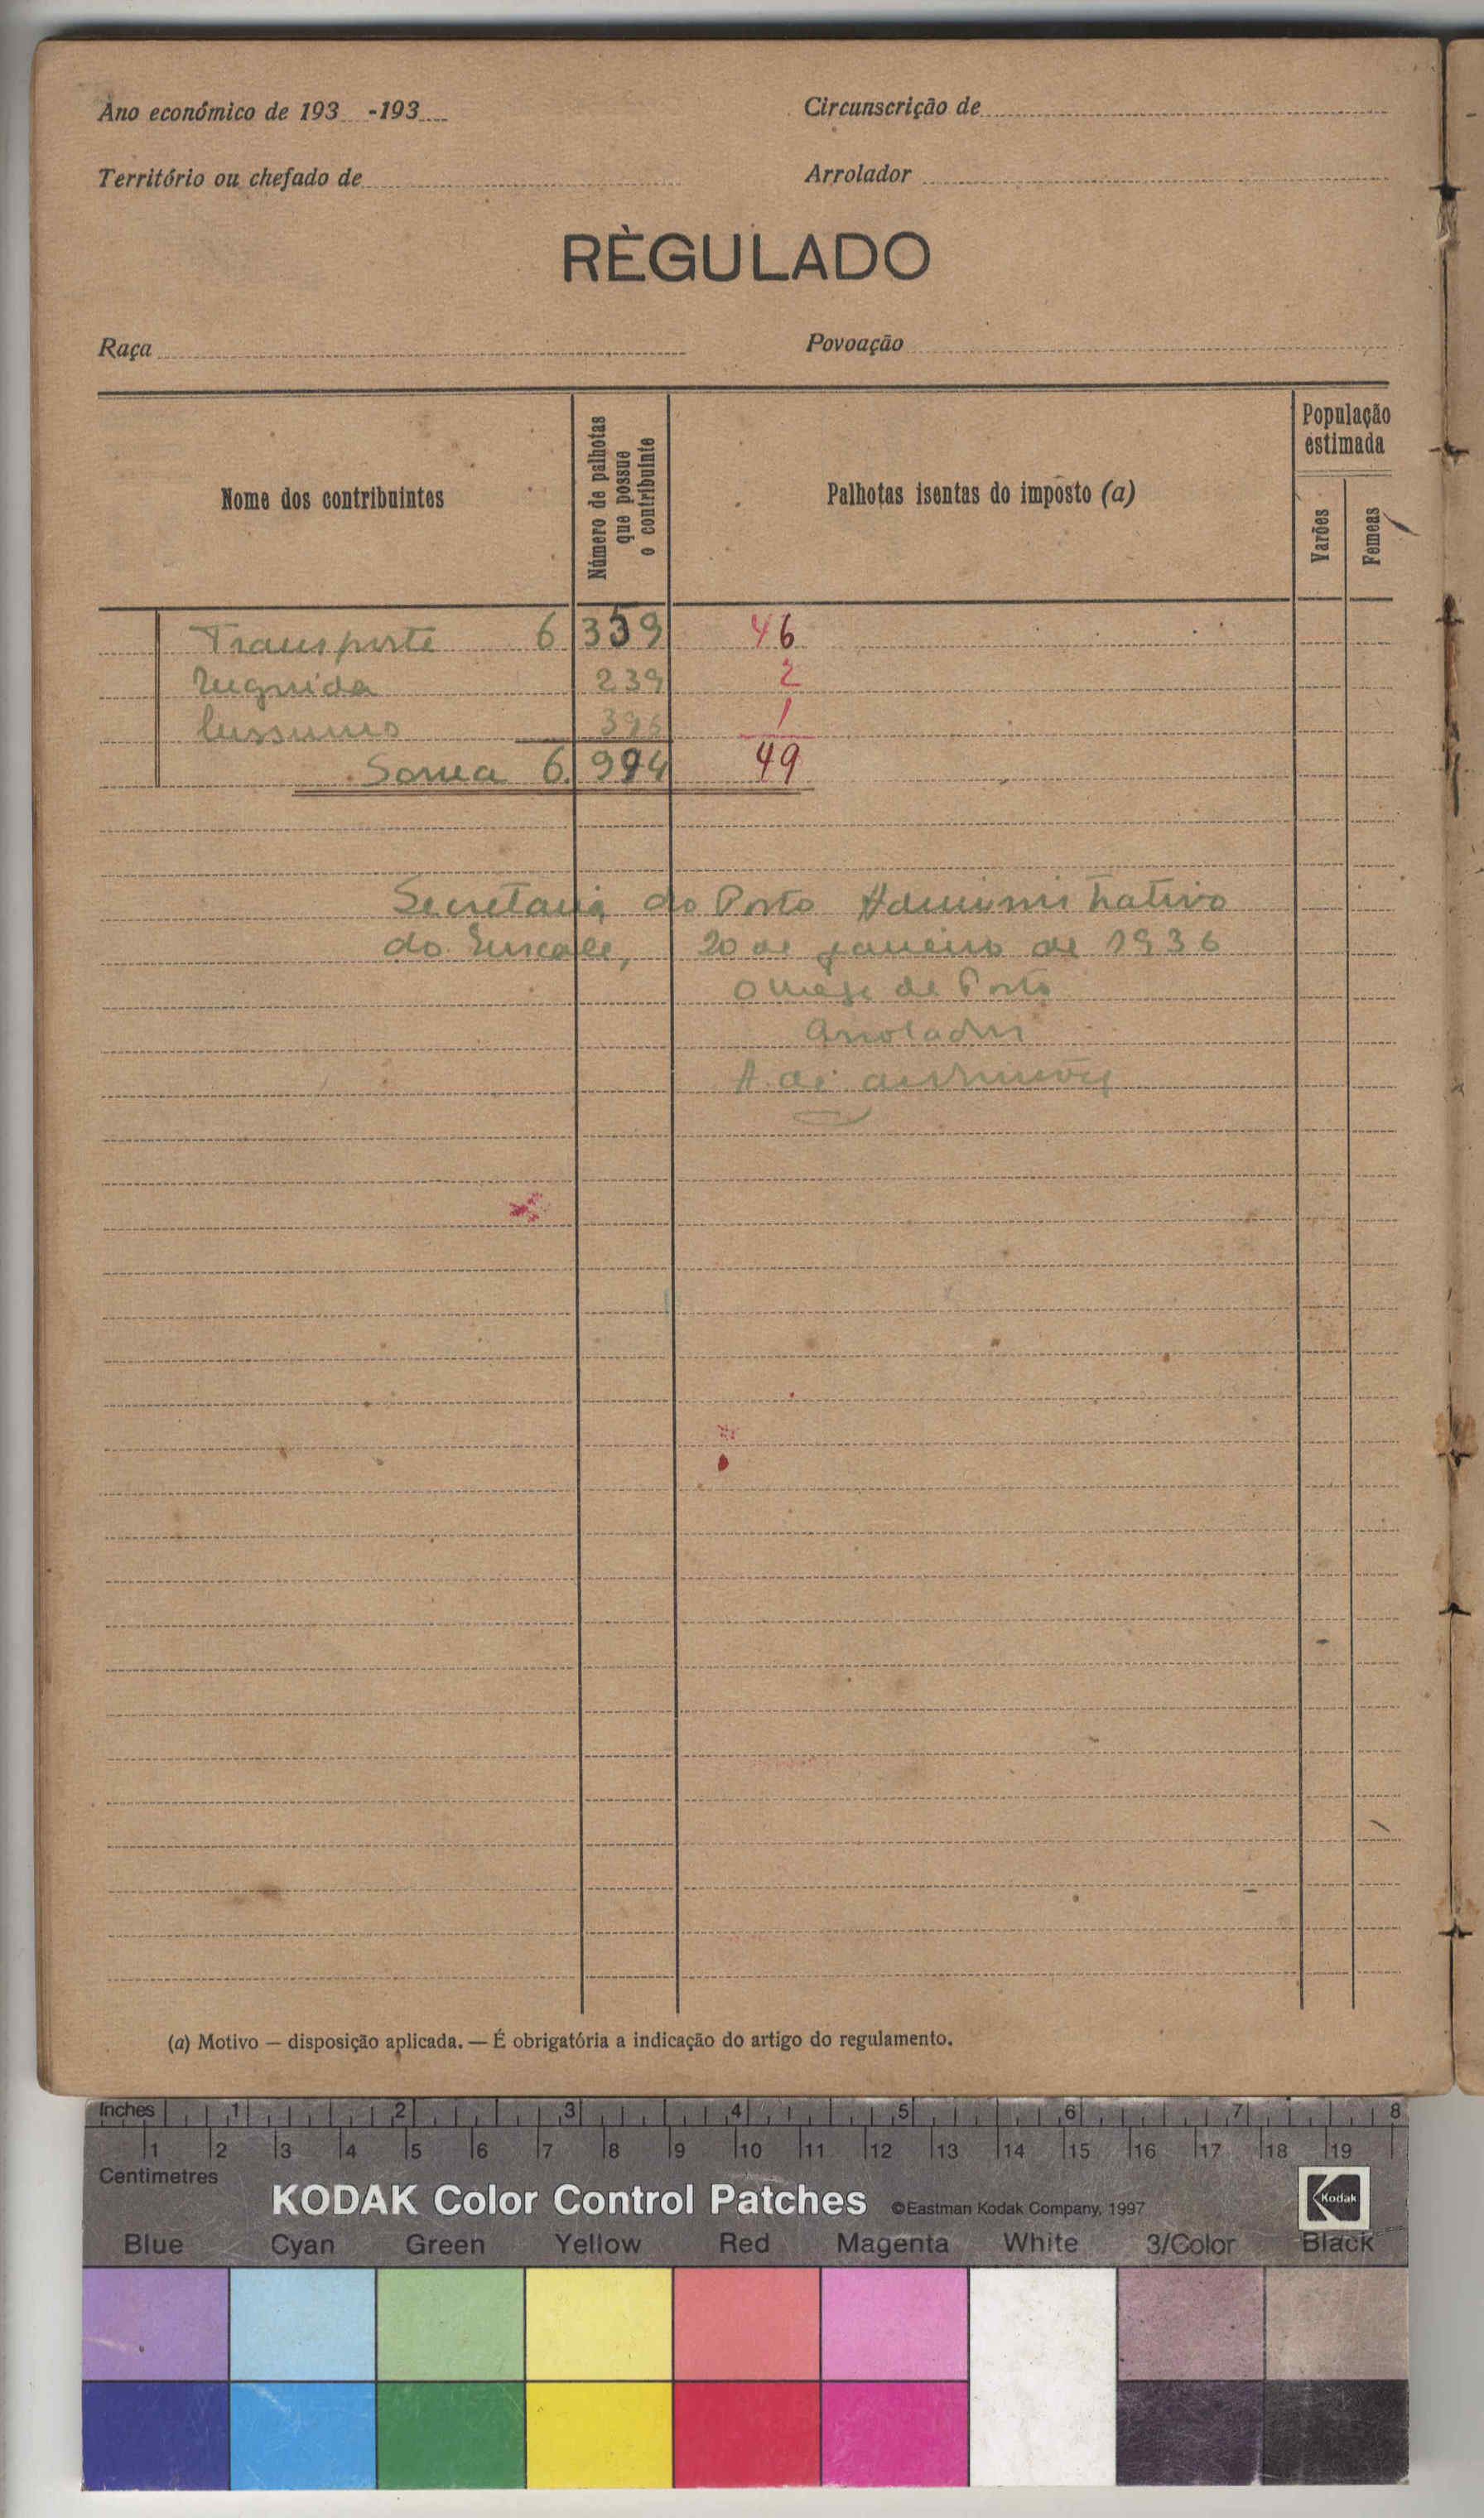 Ano económico de 193 -193
Circunscrição de
Território ou chefado de
Arrolador
RÈGULADO
Raça
Povoação
Nome dos contribuintes
Número de palhotas que possue o contribuinte
Palhotas isentas do impôsto (a)
População estimada
Varões
Femeas
Transporte 6 359 46
239 2
396 1
Soma 6. 994 49
Secretaria do Posto Administrativo
do 20 de janeiro de 1936
O de Posto
Arrolador
A. de
(a) Motivo — disposição aplicada. — É obrigatória a indicação do artigo do regulamento.
Inches 1 2 3 4 5 6 7 8
1 2 3 4 5 6 7 8 9 10 11 12 13 14 15 16 17 18 19
Centimetres
KODAK Color Control Patches ©Eastman Kodak Company, 1997 Kodak
Blue Cyan Green Yellow Red Magenta White 3/Color Black